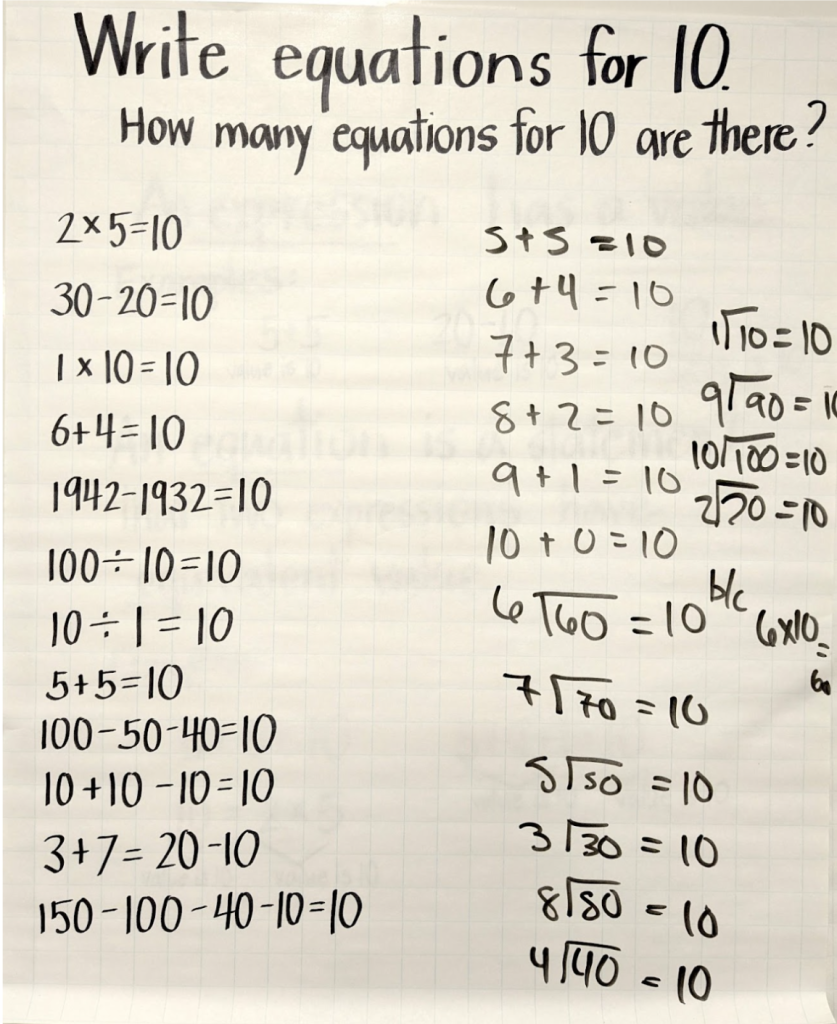 Write equations for 10.
How many equations for 10 are there?
2×5=10
30-20=10
1×10=10
6+4=10
1942-1932=10
100÷10=10
10÷1=10
5+5=10
100-50-40=10
10+10-10=10
3+7=20-10
150-100-40-10=10
5+5=10
6+4=10
7+3=10
8+2=10
9+1=10
10+0=10
6⟌60=10 b/c 6×10
=
60
7⟌70=10
5⟌50=10
3⟌30=10
8⟌80=10
4⟌40=10
1⟌10=10
9⟌90=10
10⟌100=10
2⟌20=10